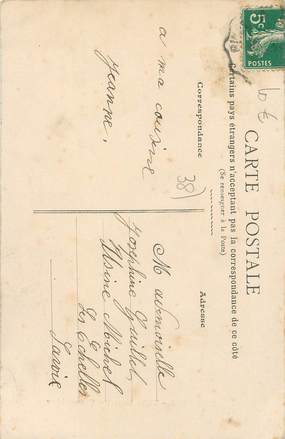 CARTE POSTALE
(Se renseigner à la Poste)
Certains pays étrangers n'acceptant pas la correspondance de ce côté
Correspondance
Adresse
a ma cousine
Jeanne.
Mademoiselle
Joséphine Guillet
Usine Michel
Les Echelles
Savoie
38)
6 €
5c
POSTES